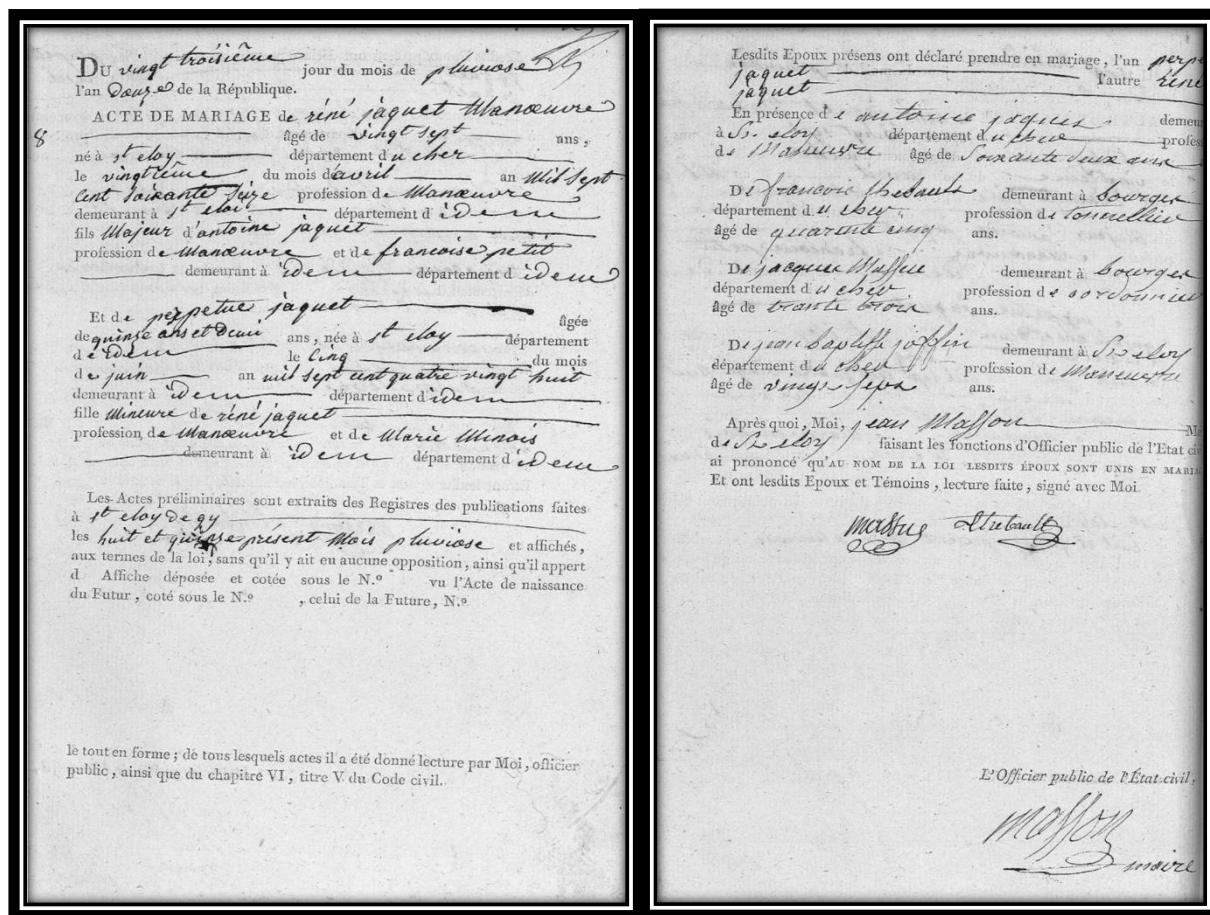 DU vingt troisième jour du mois de pluviose
l'an Douze de la République.
8
ACTE DE MARIAGE de réné jaquet Manœuvre
âgé de vingt sept ans,
né à st eloy département du cher
le vingtième du mois d'avril an Mil sept
cent soixante seize profession de Manœuvre
demeurant à st eloi département d'idem
fils Majeur d'antoine jaquet
profession de Manœuvre et de francoise petit
demeurant à idem département d'idem
Et de perpetue jaquet âgée
de quinse ans et demi ans, née à st eloy département
d'idem le Cinq du mois
de juin an mil sept cent quatre vingt huit
demeurant à idem département d'idem
fille Mineure de réné jaquet
profession de Manœuvre et de Marie Minois
demeurant à idem département d'idem
Les Actes préliminaires sont extraits des Registres des publications faites
à st eloy de gy
les huit et quinse présent Mois pluviôse et affichés,
aux termes de la loi, sans qu'il y ait eu aucune opposition, ainsi qu'il appert
d Affiche déposée et cotée sous le N.º vu l'Acte de naissance
du Futur, coté sous le N.º , celui de la Future, N.º
le tout en forme; de tous lesquels actes il a été donné lecture par Moi, officier
public, ainsi que du chapitre VI, titre V du Code civil.
Lesdits Epoux présens ont déclaré prendre en mariage, l'un perpe
jaquet l'autre réné
jaquet
En présence de antoine jaques demeur
à St eloy département du cher profess
de Maneuvre âgé de Soixante deux ans
De francois thebault demeurant à bourges
département du cher profession de tonnellier
âgé de quarante cinq ans.
De jacques Massue demeurant à bourges
département du cher profession de cordonnier
âgé de trante trois ans.
De jean baptiste joffin demeurant à St eloy
département du cher profession de Maneuvre
âgé de vingt sept ans.
Après quoi, Moi, jean Masson
de St eloy faisant les fonctions d'Officier public de l'Etat ci
ai prononcé qu'AU NOM DE LA LOI LESDITS ÉPOUX SONT UNIS EN MARIA
Et ont lesdits Epoux et Témoins, lecture faite, signé avec Moi
massue thebault
L'Officier public de l'État civil,
masson
maire